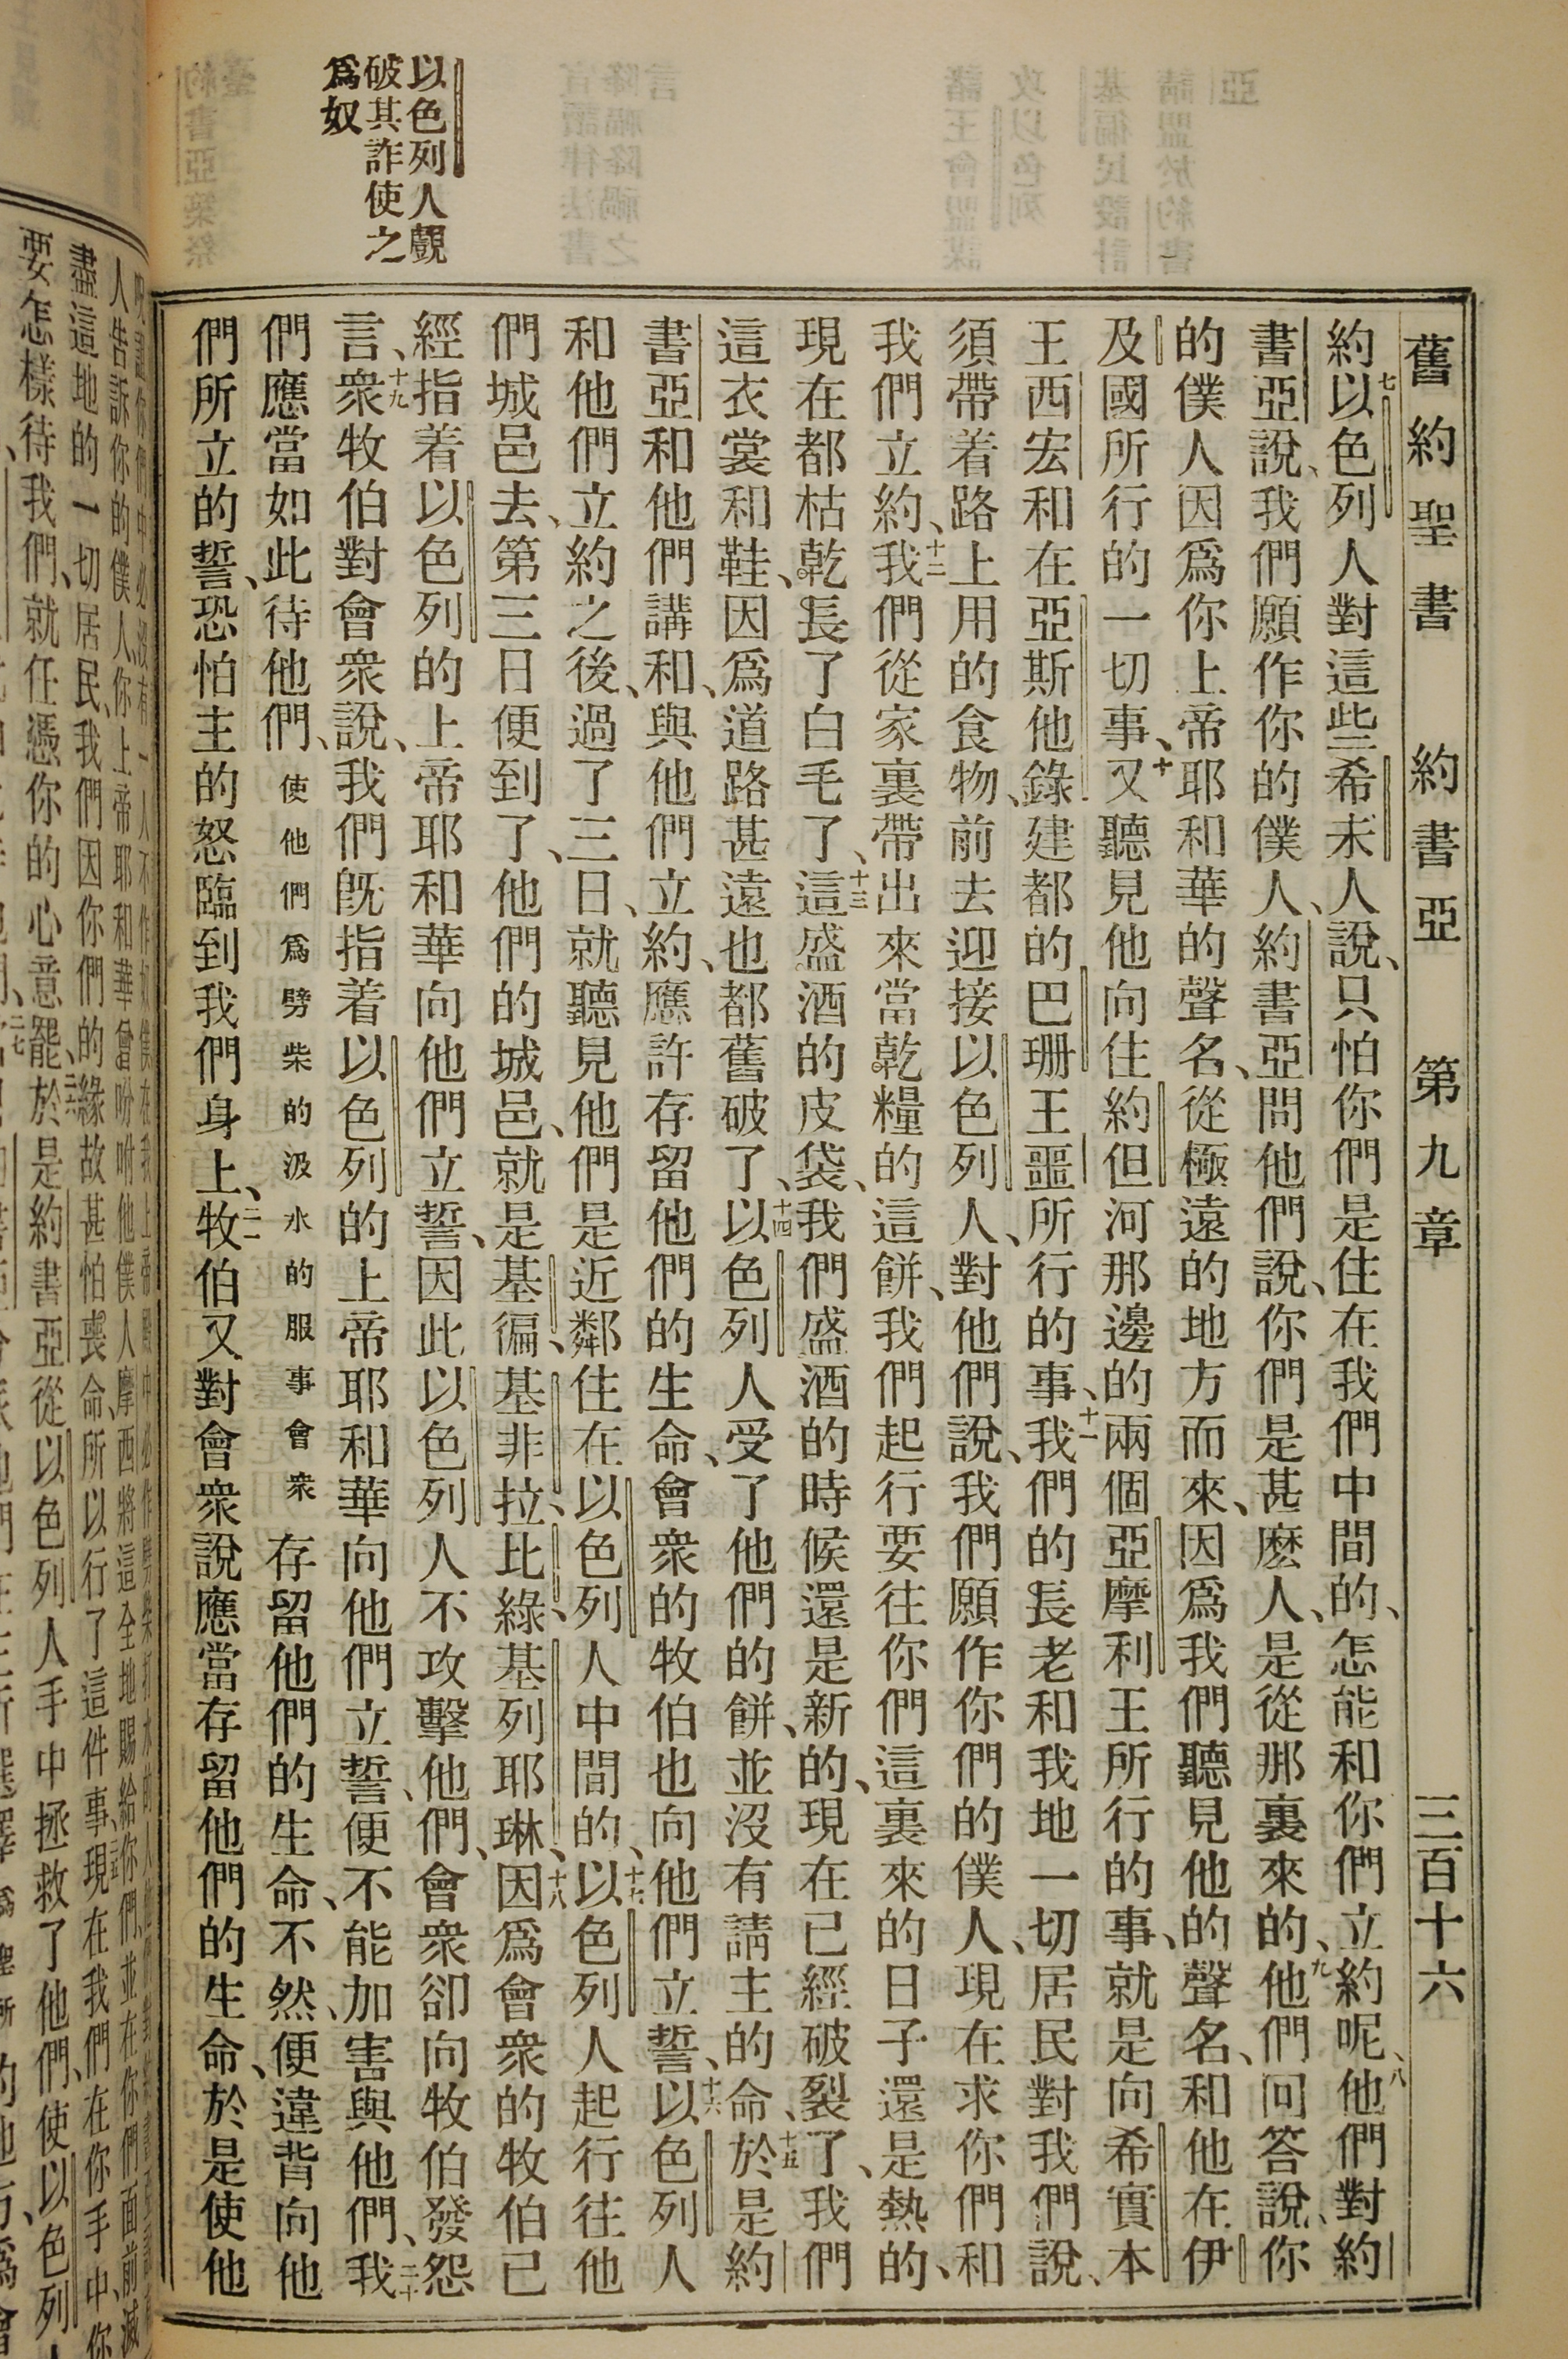 舊約聖書 約書亞 第九章 三百十六
約七以色列人對這些希未人說、只怕你們是住在我們中間的、怎能和你們立約呢、八他們對約
書亞說、我們願作你的僕人、約書亞問他們說、你們是甚麽人、是從那裏來的、九他們回答說、你
的僕人因爲你上帝耶和華的聲名、從極遠的地方而來、因爲我們聽見他的聲名、和他在伊
及國所行的一切事、十又聽見他向住約但河那邊的兩個亞摩利王所行的事、就是向希實本
王西宏和在亞斯他錄建都的巴珊王噩所行的事、十一我們的長老和我地一切居民對我們說、
須帶着路上用的食物、前去迎接以色列人、對他們說、我們願作你們的僕人、現在求你們和
我們立約、十二我們從家裏帶出來當乾糧的這餅、我們起行要往你們這裏來的日子還是熱的、
現在都枯乾長了白毛了、十三這盛酒的皮袋、我們盛酒的時候還是新的、現在已經破裂了、我們
這衣裳和鞋、因爲道路甚遠也都舊破了、十四以色列人受了他們的餅、並沒有請主的命、十五於是約
書亞和他們講和、與他們立約、應許存留他們的生命、會衆的牧伯也向他們立誓、十六以色列人
和他們立約之後、過了三日、就聽見他們是近鄰住在以色列人中間的、十七以色列人起行往他
們城邑去、第三日便到了、他們的城邑、就是基徧、基非拉、比綠、基列耶琳、十八因爲會衆的牧伯已
經指着以色列的上帝耶和華向他們立誓、因此以色列人不攻擊他們、會衆卻向牧伯發怨
言、十九衆牧伯對會衆說、我們旣指着以色列的上帝耶和華向他們立誓、便不能加害與他們、二十我
們應當如此待他們、使他們爲劈柴的汲水的服事會衆存留他們的生命、不然、便違背向他
們所立的誓、恐怕主的怒臨到我們身上、二一牧伯又對會衆說應當存留他們的生命、於是使他
以色列人覰
破其詐使之
爲奴
盡這地的一切居民、我們因你們的緣故甚怕喪命、所以行了這件事、現在我們在你手中、你
要怎樣待我們、就任憑你的心意罷、於是約書亞從以色列人手中拯救了他們、使以色列